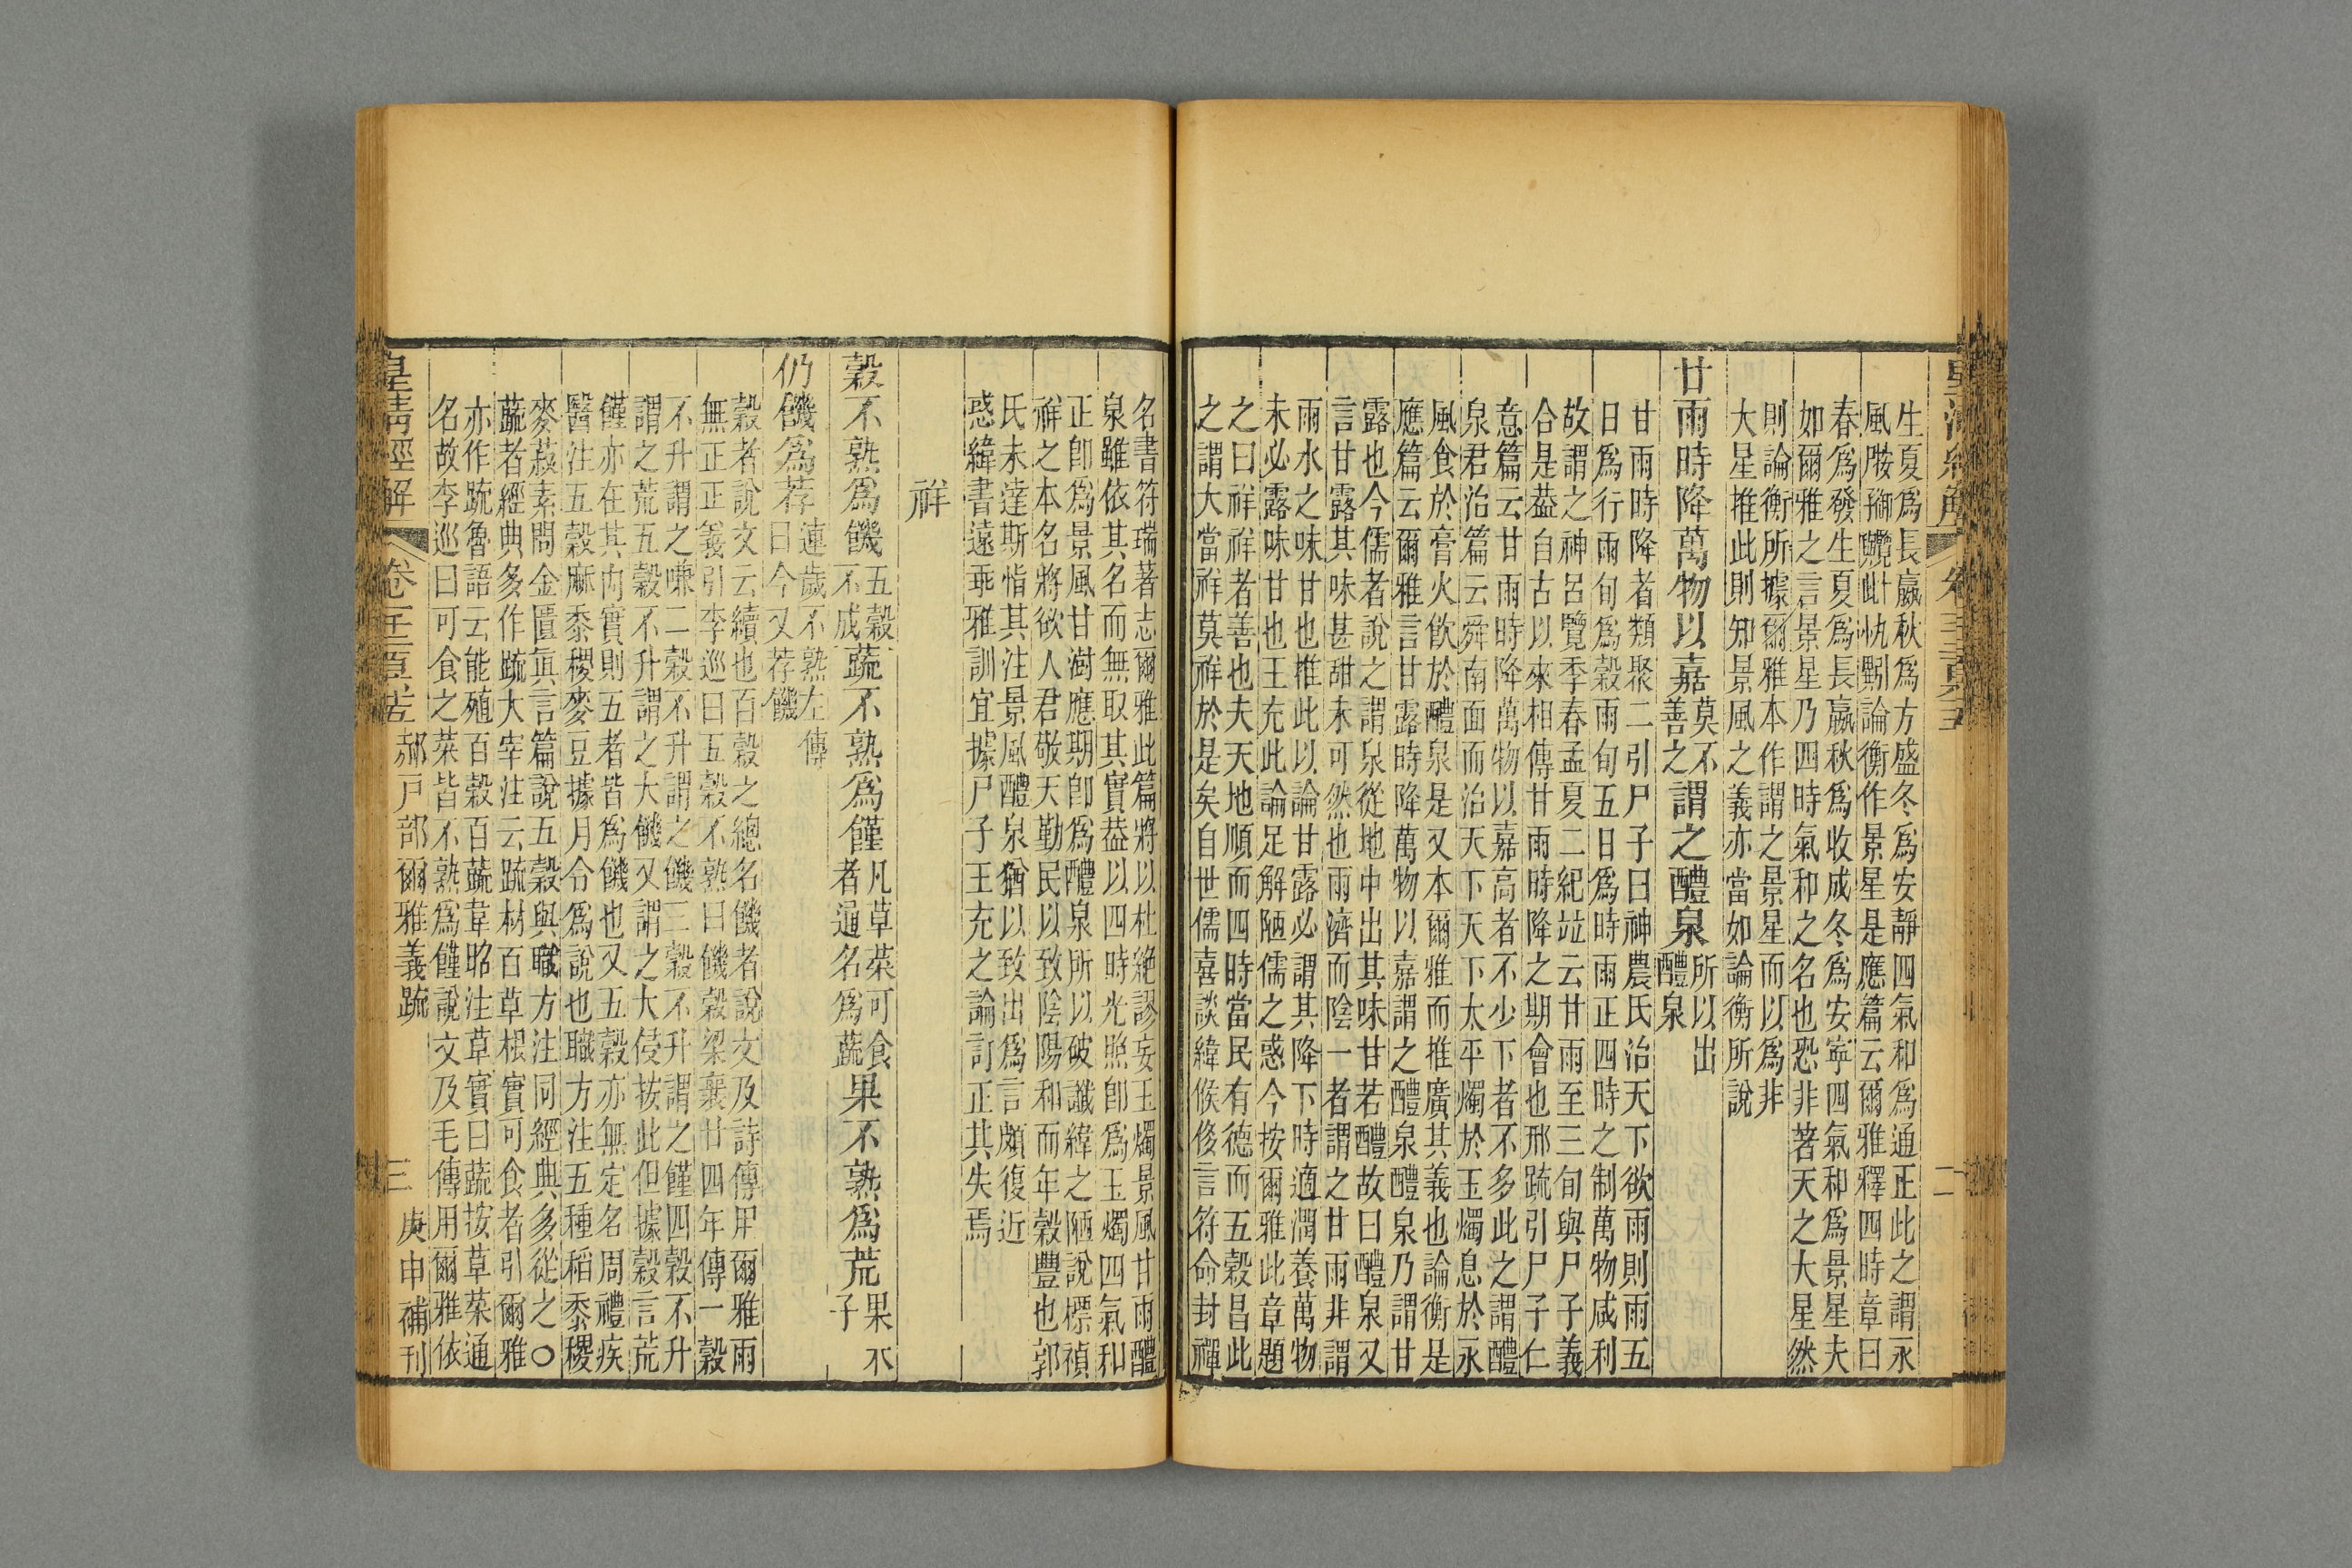 生夏爲長嬴秋爲方盛冬爲安靜四氣和爲通正此之謂永
風論衡作景星是應篇云爾雅釋四時章曰
春爲發生夏爲長嬴秋爲收成冬爲安寧四氣和爲景星夫
如爾雅之言景星乃四時氣和之名也恐非著天之大星然
則論衡所據爾雅本作謂之景星而以爲非
大星推此則知景風之義亦當如論衡所說
甘雨時降萬物以嘉莫不善之謂之醴泉所以出醴泉
甘雨時降者類聚二引尸子曰神農氏治天下欲雨則雨五
日爲行雨旬爲穀雨旬五日爲時雨正四時之制萬物咸利
故謂之神呂覽季春孟夏二紀竝云甘雨至三旬與尸子義
合是葢自古以來相傳甘雨時降之期會也邢疏引尸子仁
意篇云甘雨時降萬物以嘉高者不少下者不多此之謂醴
泉君治篇云舜南面而治天下天下太平燭於玉燭息於永
風食於膏火飲於醴泉是又本爾雅而推廣其義也論衡是
應篇云爾雅言甘露時降萬物以嘉謂之醴泉醴泉乃謂甘
露也今儒者說之謂泉從地中出其味甘若醴故曰醴泉又
言甘露其味甚甜未可然也雨濟而陰一者謂之甘雨非謂
雨水之味甘也推此以論甘露必謂其降下時適潤養萬物
未必露味甘也王充此論足解陋儒之惑今按爾雅此章題
之曰祥祥者善也夫天地順而四時當民有德而五穀昌此
之謂大當祥莫祥於是矣自世儒喜談緯候侈言符命封禪
名書符瑞著志爾雅此篇將以杜絕謬妄玉燭景風甘雨醴
泉雖依其名而無取其實葢以四時光照卽爲玉燭四氣和
正卽爲景風甘澍應期卽爲醴泉所以破讖緯之陋說標禎
祥之本名將欲人君敬天勤民以致陰陽和而年穀豐也郭
氏未達斯恉其注景風醴泉猶以致出爲言頗復近
惑緯書遠乖雅訓宜據尸子王充之論訂正其失焉
祥
穀不熟爲饑五穀不成蔬不熟爲饉凡草菜可食者通名爲蔬果不熟爲荒果木子
仍饑爲荐連歲不熟左傳曰今又荐饑
穀者說文云續也百穀之總名饑者說文及詩傳用爾雅雨
無正正義引李巡曰五穀不熟曰饑穀梁襄廿四年傳一穀
不升謂之嗛二穀不升謂之饑三穀不升謂之饉四穀不升
謂之荒五穀不升謂之大饑又謂之大侵按此但據穀言荒
饉亦在其內實則五者皆爲饑也又五穀亦無定名周禮疾
醫注五穀麻黍稷麥豆據月令爲說也職方注五種稻黍稷
麥菽素問金匱眞言篇說五穀與職方注同經典多從之○
蔬者經典多作疏大宰注云疏材百草根實可食者引爾雅
亦作疏魯語云能殖百穀百蔬韋昭注草實曰蔬按草菜通
名故李巡曰可食之菜皆不熟爲饉說文及毛傳用爾雅依
皇清經解 卷千二百五 郝戶部爾雅義疏 三 庚申補刊